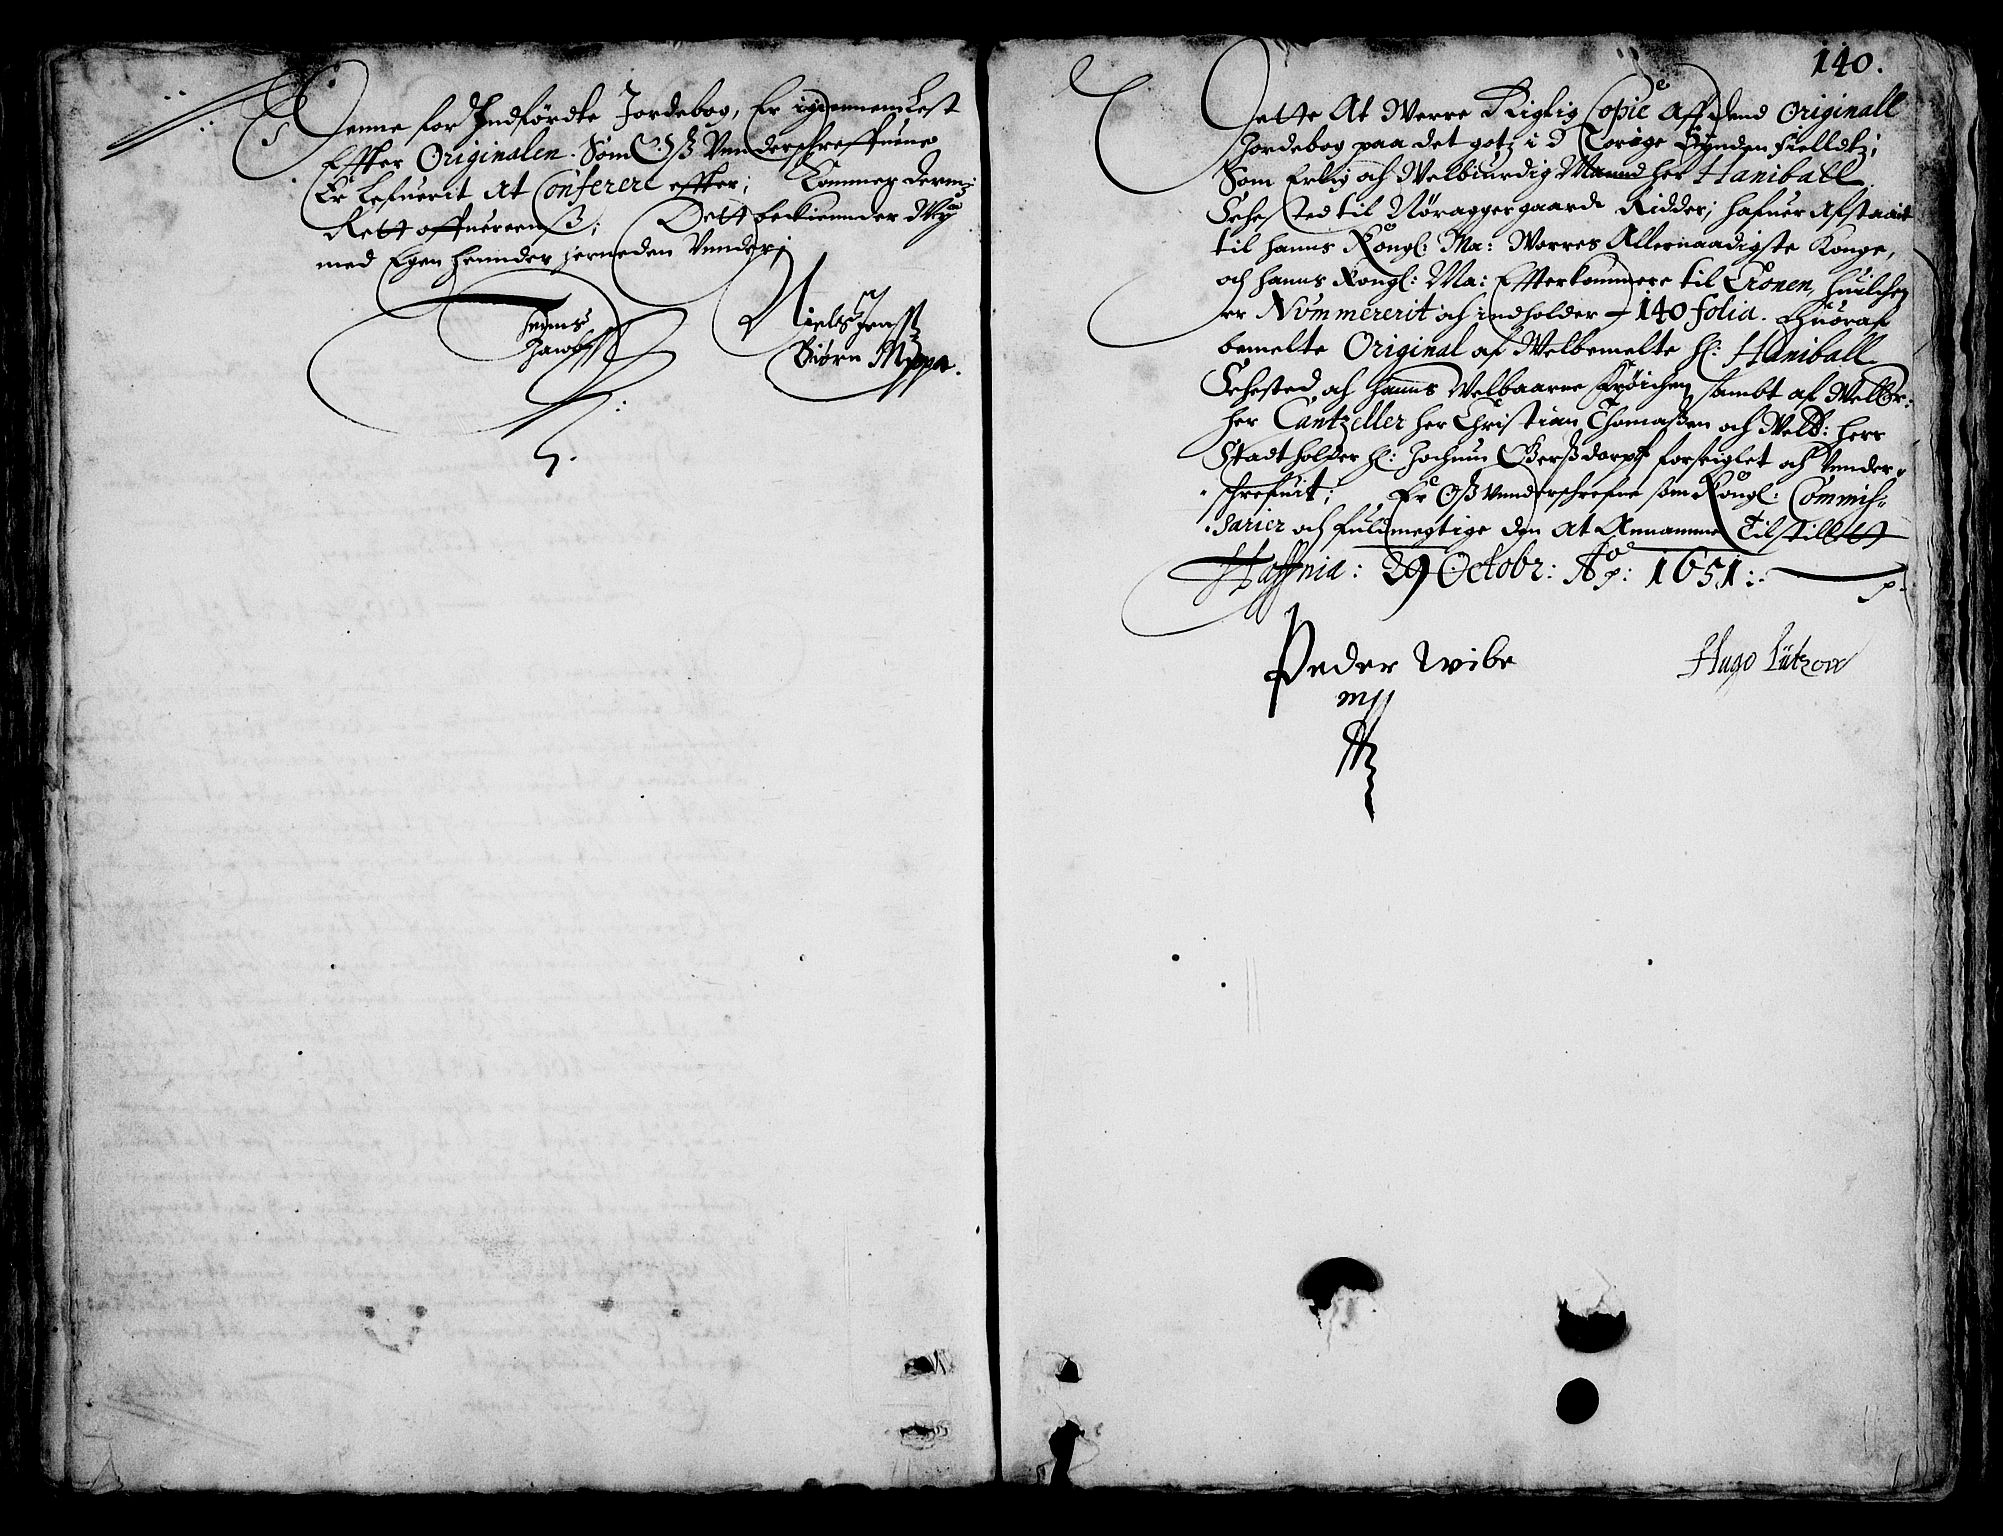 Denne for Indførdte Jordebog, Er igiennem Lest
Effter Originalen. Som Oß Vnderschreffuene
Er Lefuerit At Conferere effter; Kommer dermz
Rett offuereenß; Dett bekiennder Wy
med Egen hennder her neden Vnder;
Jenns
Jacobß
Niels Jenß
Biørn
140.
Dette At Werre Rigtig Copie Aff dend Originall
Jordebog paa det gotz i Norige Synden fieldtz;
Som Erlig och Welbiurdig Mannd her Haniball
Sehested til Nøraggergaard Ridder; hafuer Afstaait
til hanns Kongl: Ma: Worres Allernaadigste Konge,
och hanns Kongl: Ma: Efterkommere til Cronen, huilchen
er Nummererit och indholder – 140 folia. Huoraf
bemelte Original af Welbemelte H: Haniball
Sehested och hanns Welbaarne Frøichen sambt af Welbr:
her Cantzeller her Christian Thomaßen och Welb: herr
Stadtholder H: Jochum Gerßdorpf forseiglet och Vnder-
schrefuit; Er Oß Vnderschrefne som Kongl: Commis-
sarier och fuldmegtige den At Annamme Tilstillett
Haffnia: 29 Octobr: Ao: 1651:
Peder Wibe
mp
Hugo Lützow